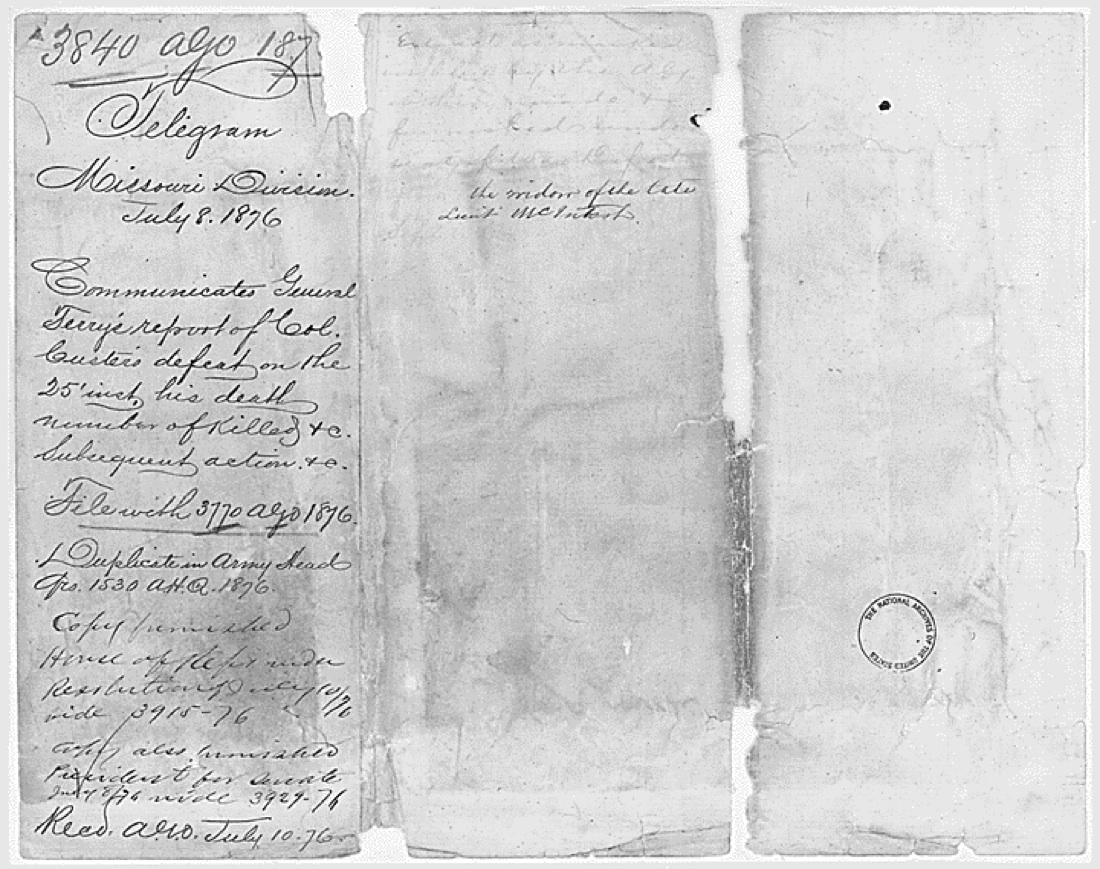 3840 AGO 187
Telegram
Missouri Division.
July 8. 1876
Communicates General
Terry's report of Col.
Custer's defeat on the
25' inst, his death
number of killed, &c.
Subsequent action. &c.
File with 3770 AGO 1876.
Duplicate in Army Head
Qrs. 1530 A.H.Q. 1876.
Copy furnished
House of Reps under
Resolution of July 10/76
vide 3915-76
Copy also furnished
President for Senate
July 8/76 vide 3929-76
Recd. A.G.O. July 10-76
furnished
the widow of the late
Lieut McIntosh.
THE NATIONAL ARCHIVES OF THE UNITED STATES